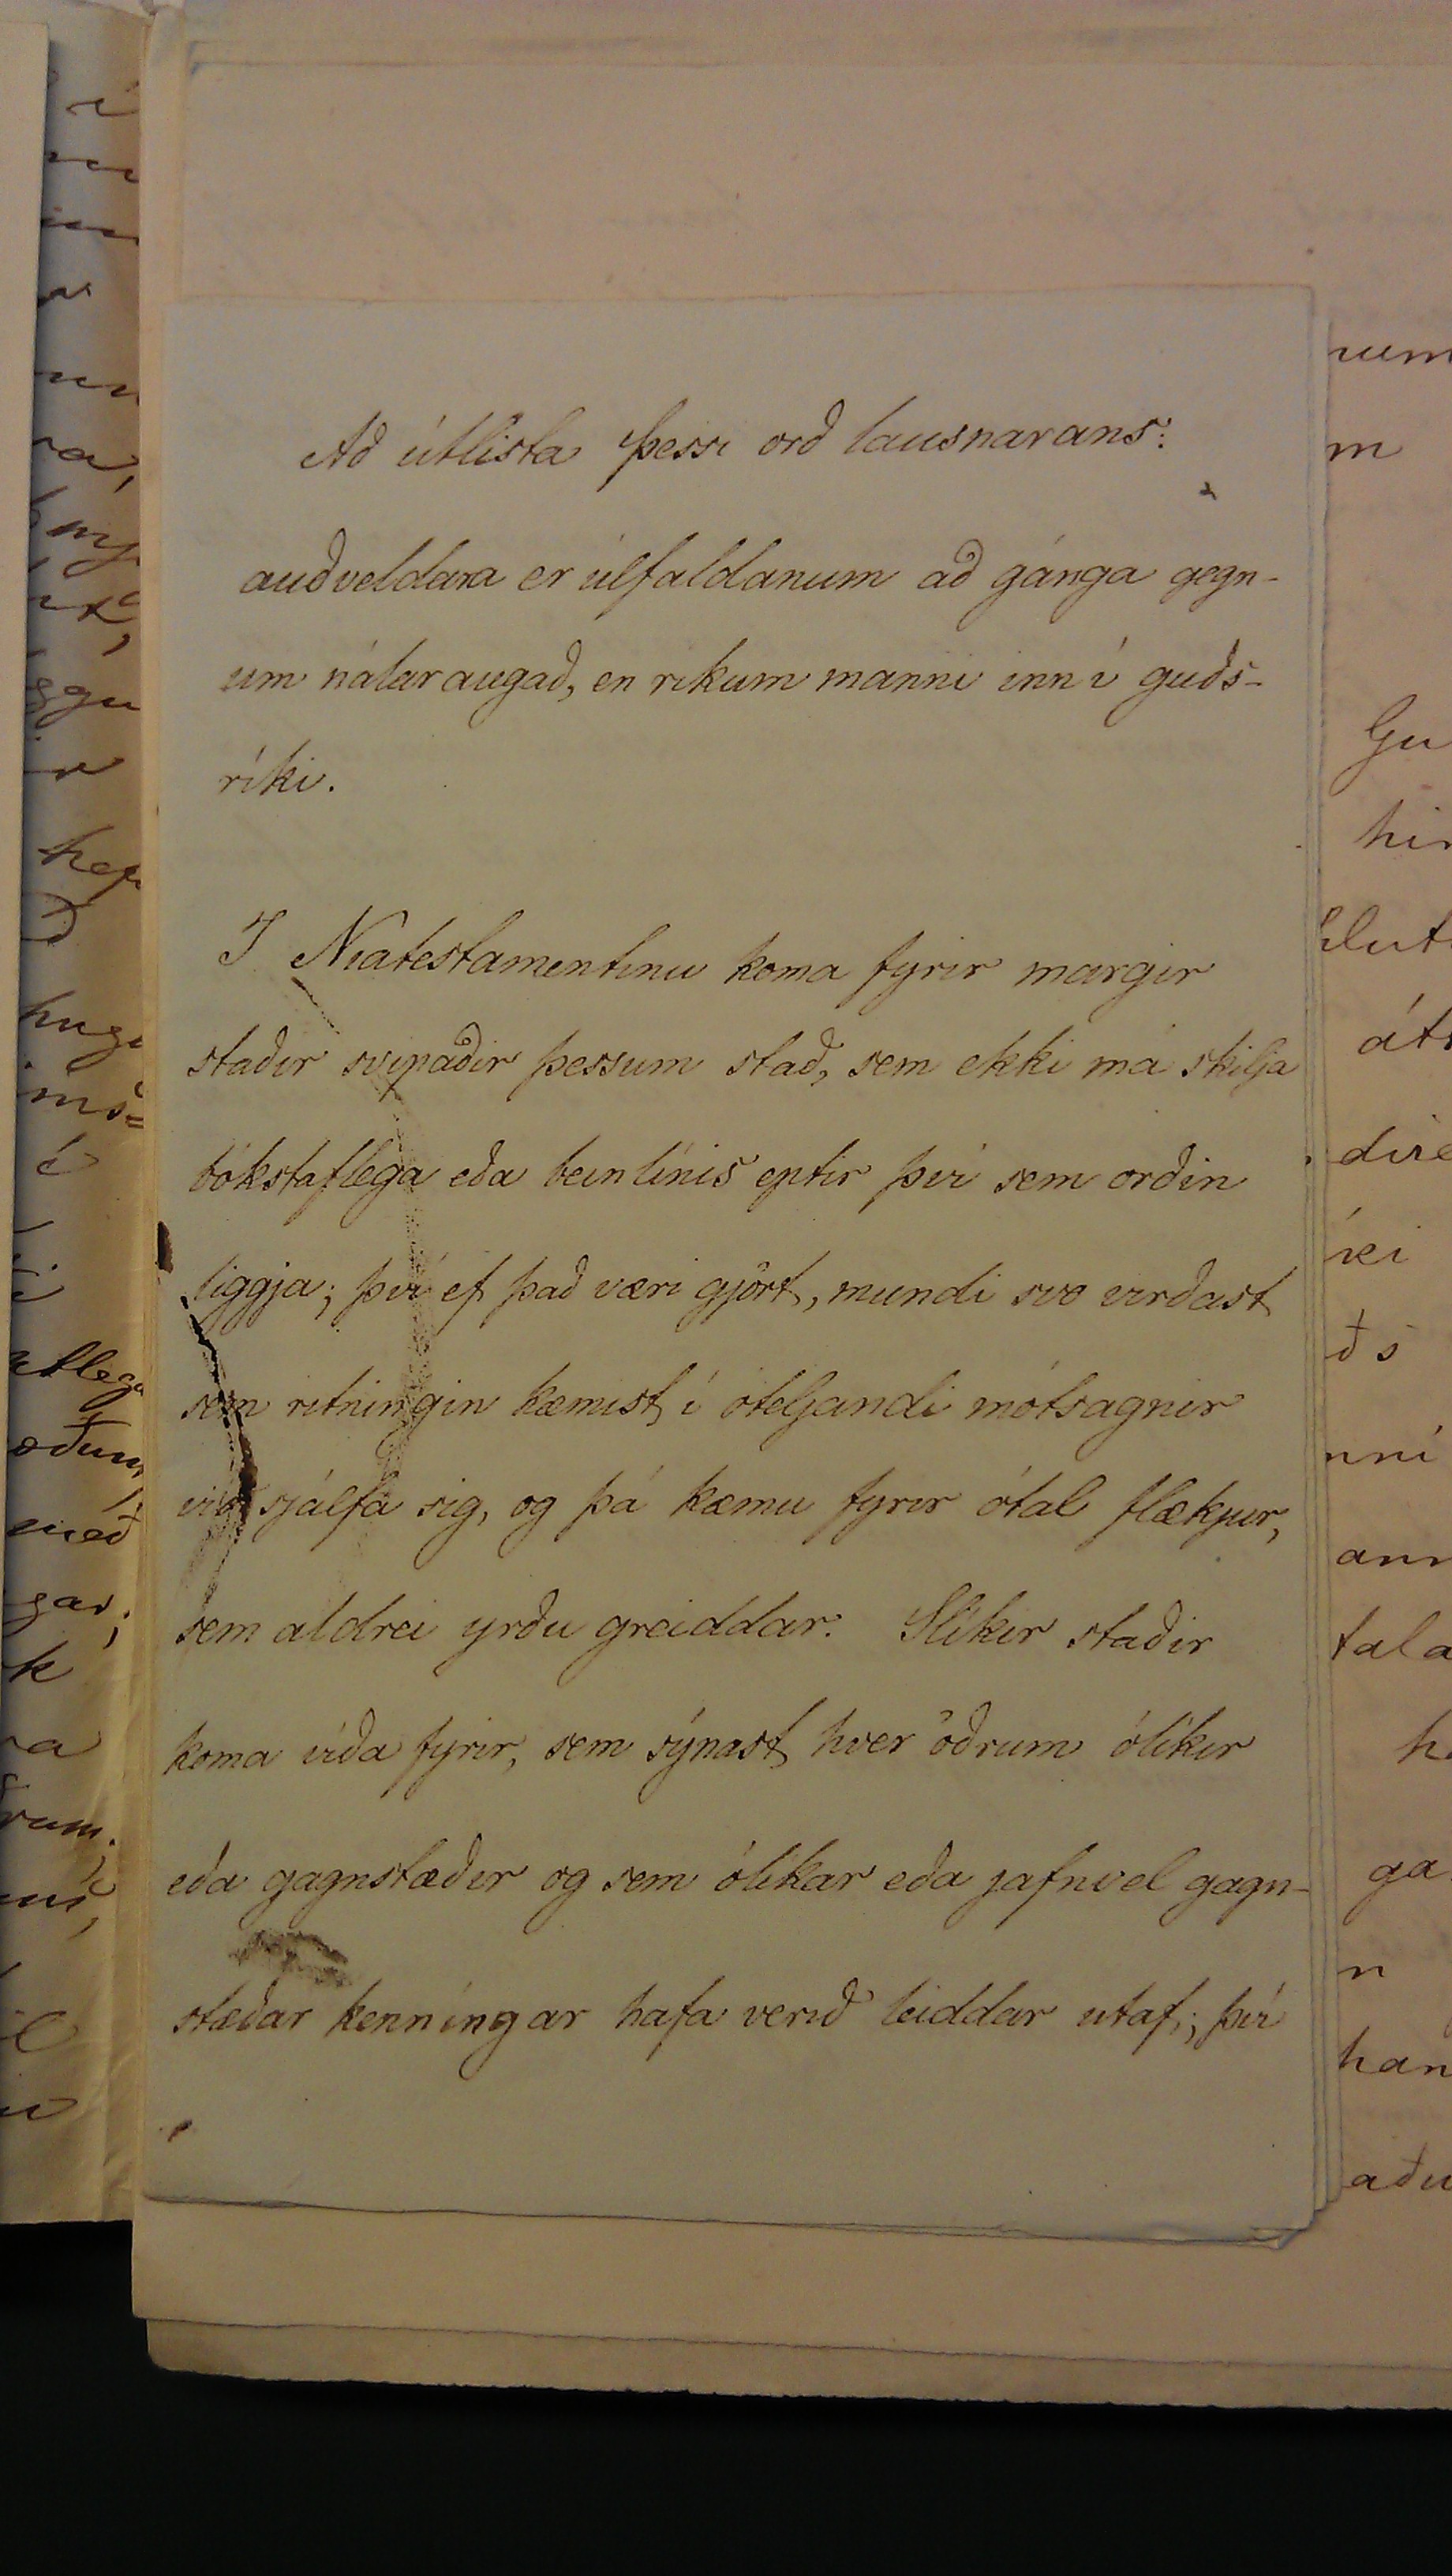 Að útlista þessi orð lausnarans:
auðveldara er úlfaldanum að gánga gegn-
um nálaraugað, en ríkum manni inn í guðs-
ríki.
I Níatestamentinu koma fyrir margir
staðir svipaðir þessum stað, sem ekki má skilja
bókstaflega eða beinlínis eptir því sem orðin
liggja; því ef það væri gjört, mundi svo virðast
sem ritningin kæmist í óteljandi mótsagnir
við sjálfa sig, og þá kæmu fyrir ótal flækjur,
sem aldrei yrðu greiddar. Slíkir staðir
koma víða fyrir, sem sýnast hver öðrum ólíkir
eða gagnstæðir og sem ólíkar eða jafnvel gagn-
stæðar kenníngar hafa verið leiddar útaf; því